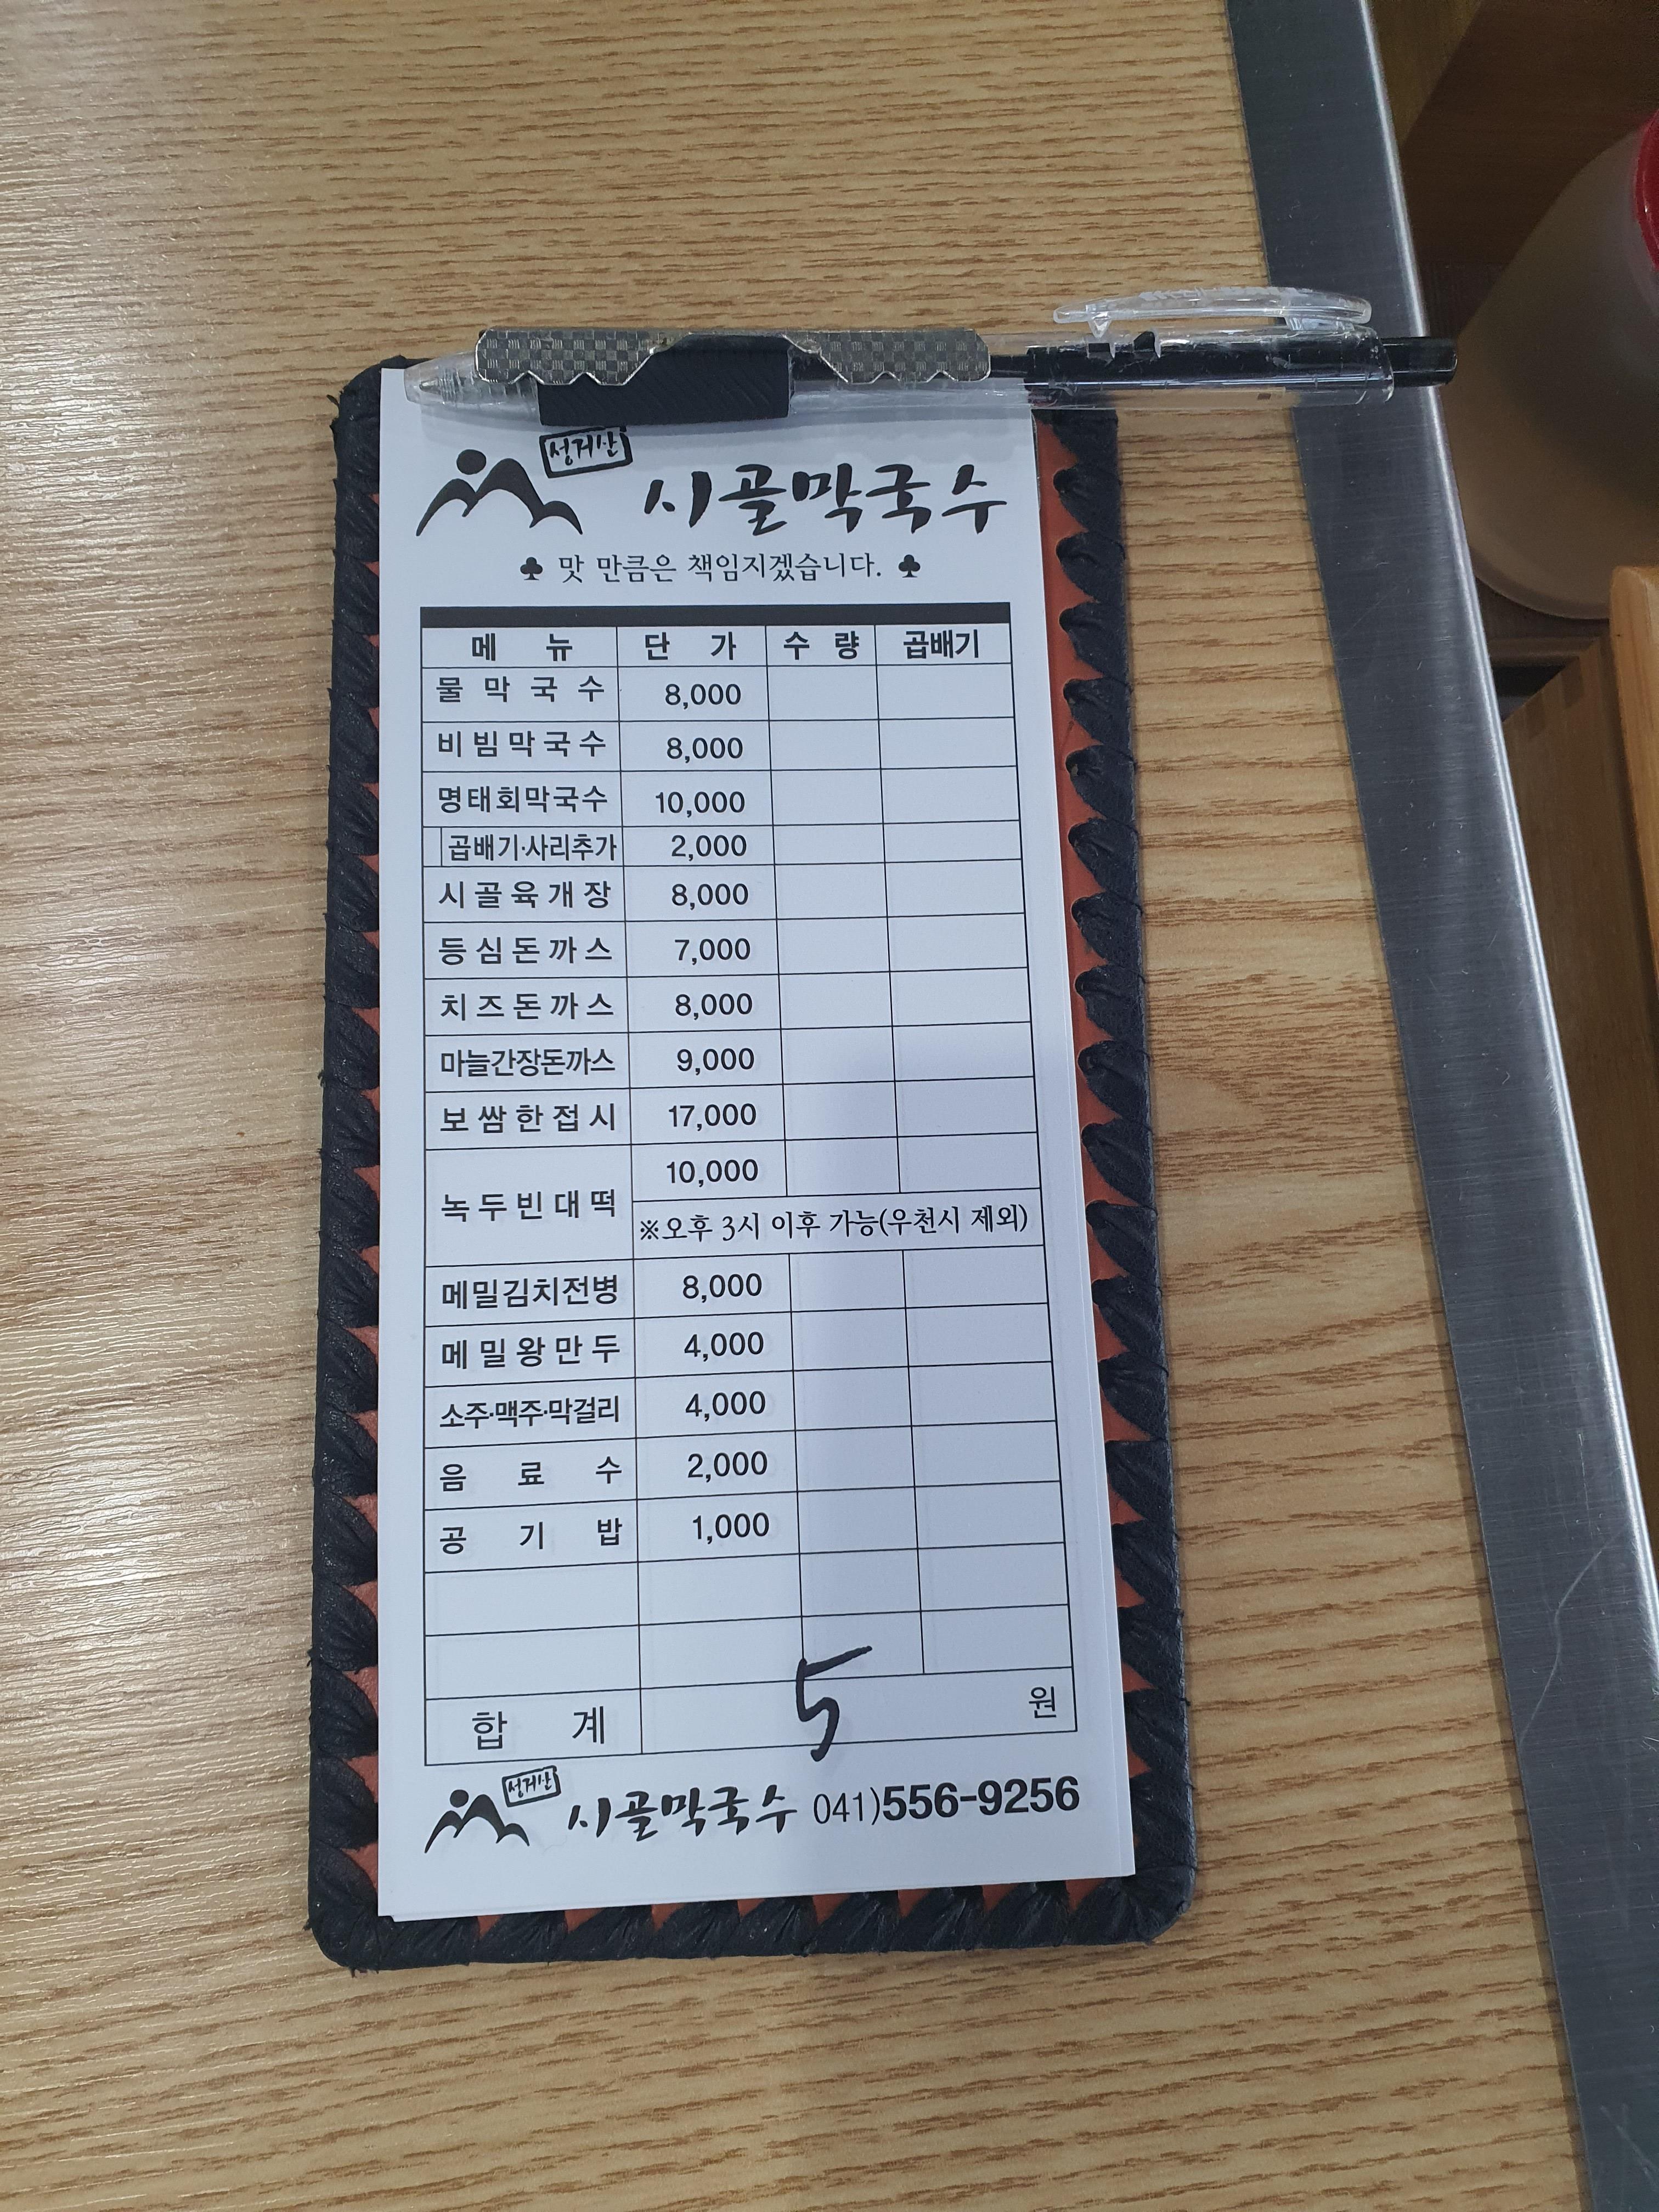 성거산
시골막국수
♣ 맛 만큼은 책임지겠습니다. ♣
메 뉴 단 가 수 량 곱배기
물막국수 8,000
비빔막국수 8,000
명태회막국수 10,000
곱배기·사리추가 2,000
시골육개장 8,000
등심돈까스 7,000
치즈돈까스 8,000
마늘간장돈까스 9,000
보쌈한접시 17,000
녹두빈대떡 10,000
※오후 3시 이후 가능(우천시 제외)
메밀김치전병 8,000
메밀왕만두 4,000
소주·맥주·막걸리 4,000
음 료 수 2,000
공 기 밥 1,000
합 계 5 원
성거산
시골막국수 041)556-9256